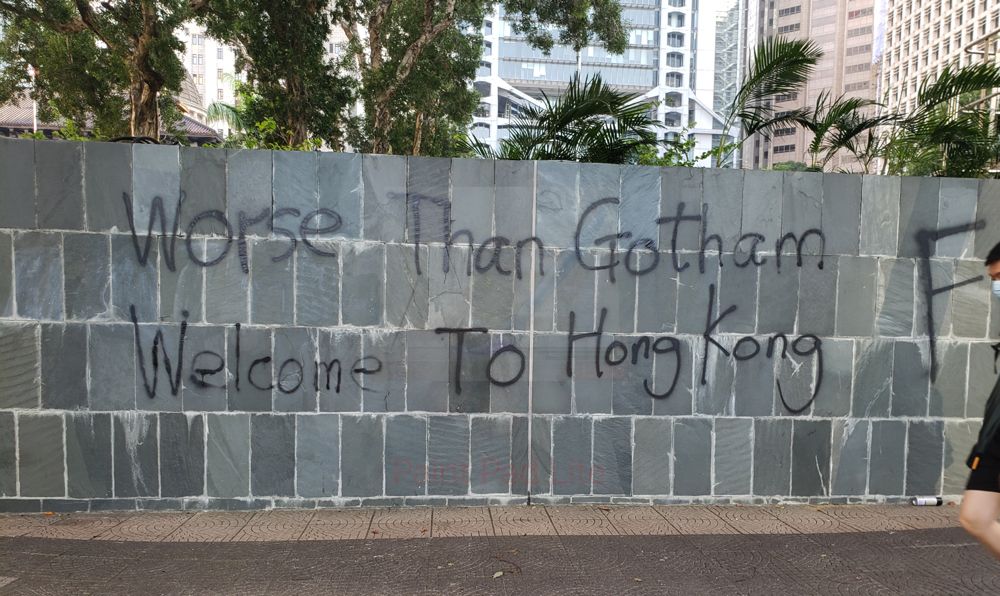 Worse Than Gotham
Welcome To Hong Kong
F
Paint Pad Lite